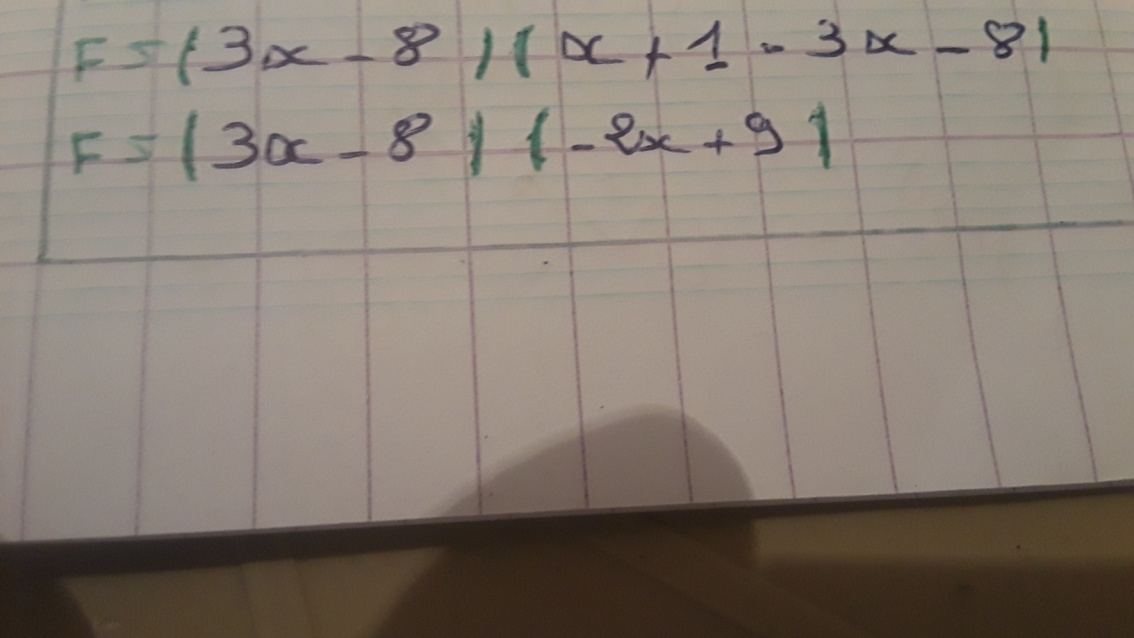 F = (3x - 8) (x + 1 - 3x - 8)
F = (3x - 8) (-2x + 9)